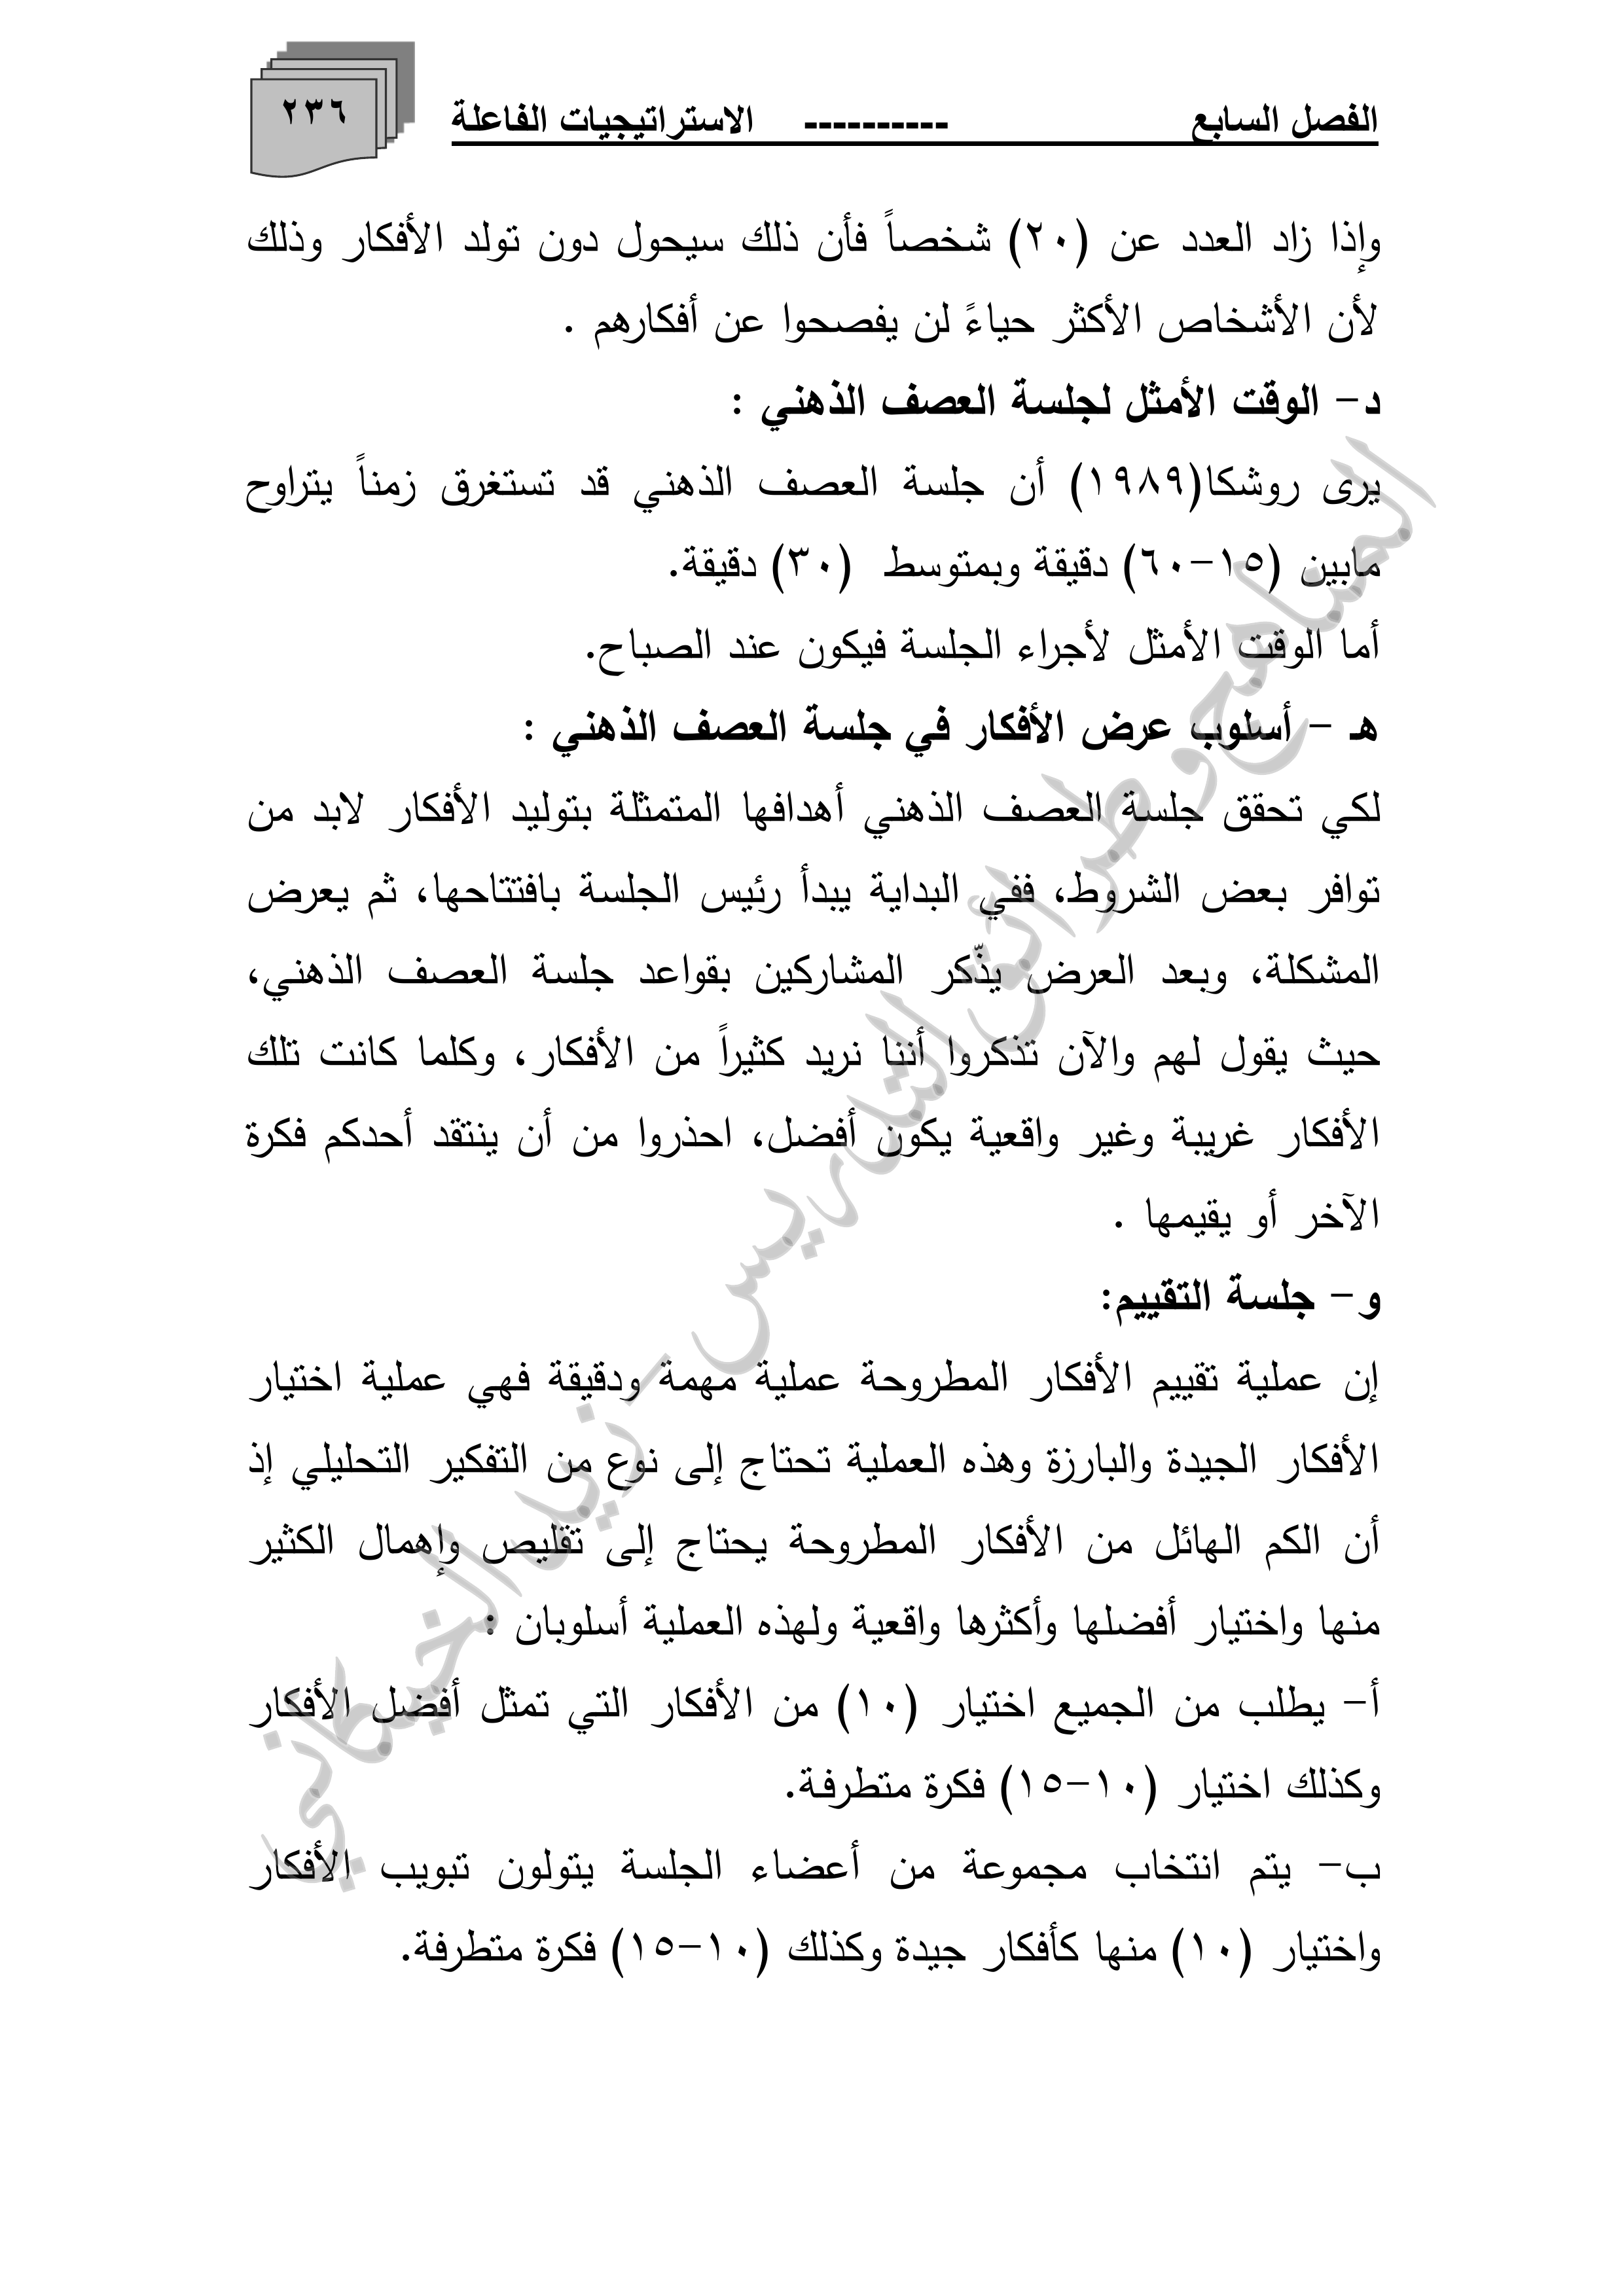 الفصل السابع ---------- الاستراتيجيات الفاعلة
٢٣٦
وإذا زاد العدد عن (٢٠) شخصاً فأن ذلك سيحول دون تولد الأفكار وذلك
لأن الأشخاص الأكثر حياءً لن يفصحوا عن أفكارهم .
د- الوقت الأمثل لجلسة العصف الذهني :
يرى روشكا(١٩٨٩) أن جلسة العصف الذهني قد تستغرق زمناً يتراوح
مابين (١٥-٦٠) دقيقة وبمتوسط (٣٠) دقيقة.
أما الوقت الأمثل لأجراء الجلسة فيكون عند الصباح.
هـ - أسلوب عرض الأفكار في جلسة العصف الذهني :
لكي تحقق جلسة العصف الذهني أهدافها المتمثلة بتوليد الأفكار لابد من
توافر بعض الشروط، ففي البداية يبدأ رئيس الجلسة بافتتاحها، ثم يعرض
المشكلة، وبعد العرض يذّكر المشاركين بقواعد جلسة العصف الذهني،
حيث يقول لهم والآن تذكروا أننا نريد كثيراً من الأفكار، وكلما كانت تلك
الأفكار غريبة وغير واقعية يكون أفضل، احذروا من أن ينتقد أحدكم فكرة
الآخر أو يقيمها .
و- جلسة التقييم:
إن عملية تقييم الأفكار المطروحة عملية مهمة ودقيقة فهي عملية اختيار
الأفكار الجيدة والبارزة وهذه العملية تحتاج إلى نوع من التفكير التحليلي إذ
أن الكم الهائل من الأفكار المطروحة يحتاج إلى تقليص وإهمال الكثير
منها واختيار أفضلها وأكثرها واقعية ولهذه العملية أسلوبان :
أ- يطلب من الجميع اختيار (١٠) من الأفكار التي تمثل أفضل الأفكار
وكذلك اختيار (١٠-١٥) فكرة متطرفة.
ب- يتم انتخاب مجموعة من أعضاء الجلسة يتولون تبويب الأفكار
واختيار (١٠) منها كأفكار جيدة وكذلك (١٠-١٥) فكرة متطرفة.
المناهج وطرائق التدريس - زيد الخيكاني